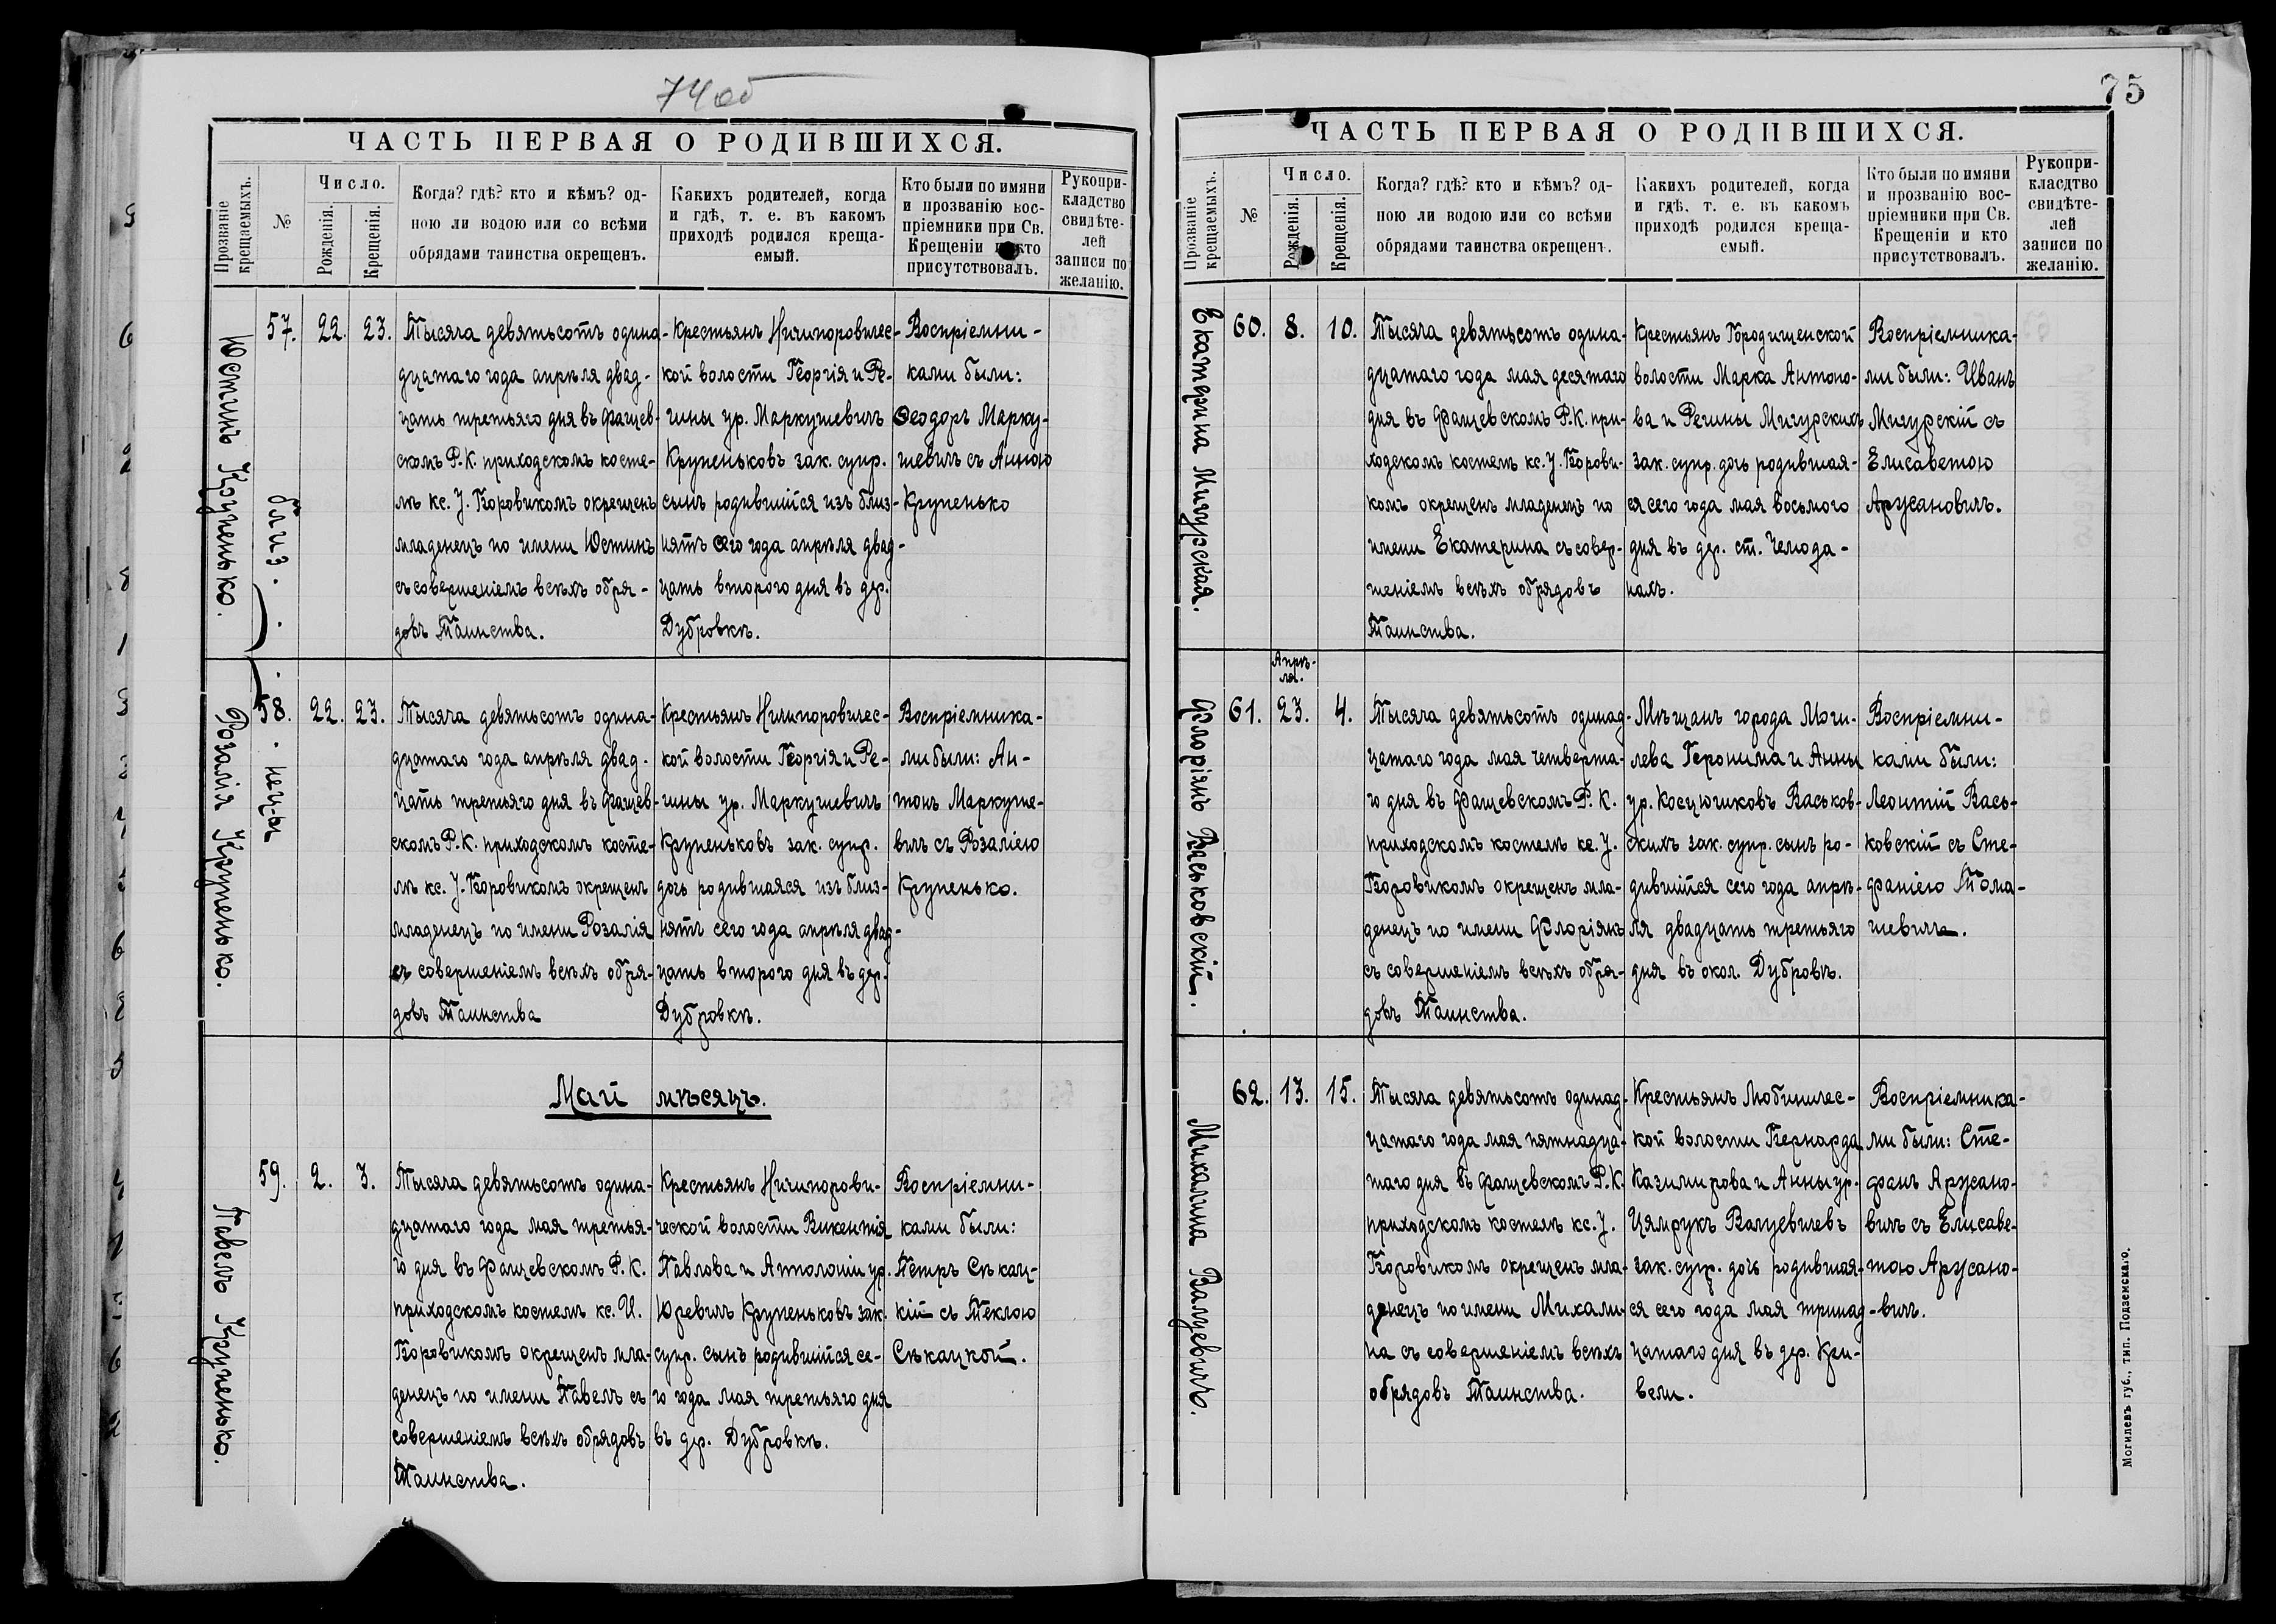 74 об
ЧАСТЬ ПЕРВАЯ О РОДИВШИХСЯ.
Прозваніе крещаемыхъ.
№
Число.
Рожденія.
Крещенія.
Когда? гдѣ? кто и кѣмъ? од-
ною ли водою или со всѣми
обрядами таинства окрещенъ.
Какихъ родителей, когда
и гдѣ, т. е. въ какомъ
приходѣ родился креща-
емый.
Кто были по имяни
и прозванію вос-
пріемники при Св.
Крещеніи и кто
присутствовалъ.
Рукопри-
кладство
свидѣте-
лей
записи по
желанію.
Юстинъ Крупенько.
57. 22. 23.
близ.
Тысяча девятьсотъ одина-
дцатаго года апрѣля двад-
цать третьяго дня въ Фащев-
скомъ Р.К. приходскомъ косте-
лѣ кс. J. Боровикомъ окрещенъ
младенецъ по имени Юстинъ
съ совершеніемъ всѣхъ обря-
довъ Таинства.
Крестьянъ Ничипоровичес-
кой волости Георгія и Ре-
гины ур. Маркушевичъ
Крупеньковъ зак. супр.
сынъ родившійся изъ близ-
нятъ сего года апрѣля двад-
цать второго дня въ дер.
Дубровкѣ.
Воспріемни-
ками были:
Ѳеодоръ Марку-
шевичъ съ Анною
Крупенько
Розалія Крупенько.
58. 22. 23.
нецы
Тысяча девятьсотъ одина-
дцатаго года апрѣля двад-
цать третьяго дня въ Фащев-
скомъ Р.К. приходскомъ косте-
лѣ кс. J. Боровикомъ окрещенъ
младенецъ по имени Розалія
съ совершеніемъ всѣхъ обря-
довъ Таинства
Крестьянъ Ничипоровичес-
кой волости Георгія и Ре-
гины ур. Маркушевичъ
Крупеньковъ зак. супр.
дочь родившаяся изъ близ-
нятъ сего года апрѣля двад-
цать второго дня въ дер.
Дубровкѣ.
Воспріемника-
ми были: Ан-
тонъ Маркуше-
вичъ съ Розаліею
Крупенько.
Май мѣсяцъ.
Павелъ Крупенько.
59. 2. 3.
Тысяча девятьсотъ одина-
дцатаго года мая третья-
го дня въ Фащевскомъ Р. К.
приходскомъ костелѣ кс. И.
Боровикомъ окрещенъ мла-
денецъ по имени Павелъ съ
совершеніемъ всѣхъ обрядовъ
Таинства.
Крестьянъ Ничипорови-
ческой волости Викентія
Павлова и Аполоніи ур.
Юревичъ Крупеньковъ зак.
супр. сынъ родившійся се-
го года мая третьяго дня
въ дер. Дубровкѣ.
Воспріемни-
ками были:
Петръ Сѣкац-
кій съ Теклою
Сѣкацкой.
75
ЧАСТЬ ПЕРВАЯ О РОДИВШИХСЯ.
Прозваніе крещаемыхъ.
№
Число.
Рожденія.
Крещенія.
Когда? гдѣ? кто и кѣмъ? од-
ною ли водою или со всѣми
обрядами таинства окрещенъ.
Какихъ родителей, когда
и гдѣ, т. е. въ какомъ
приходѣ родился креща-
емый.
Кто были по имяни
и прозванію вос-
пріемники при Св.
Крещеніи и кто
присутствовалъ.
Рукопри-
класдтво
свидѣте-
лей
записи по
желанію.
Екатерина Мигурская.
60. 8. 10.
Тысяча девятьсотъ одина-
дцатаго года мая десятаго
дня въ Фащевскомъ Р.К. при-
ходскомъ костелѣ кс. J. Борови-
комъ окрещенъ младенецъ по
имени Екатерина съ совер-
шеніемъ всѣхъ обрядовъ
Таинства.
Крестьянъ Городищенской
волости Марка Антоно-
ва и Регины Мигурскихъ
зак. супр. дочь родившая-
ся сего года мая восьмого
дня въ дер. ст. Чемода-
нахъ.
Воспріемника-
ми были: Иванъ
Мигурскій съ
Елисаветою
Аржановичъ.
Флоріянъ Васьковскій.
Апрѣ-
ля.
61. 23. 4.
Тысяча девятьсотъ одинад-
цатаго года мая четверта-
го дня въ Фащевскомъ Р. К.
приходскомъ костелѣ кс. J.
Боровикомъ окрещенъ мла-
денецъ по имени Флоріянъ
съ совершеніемъ всѣхъ обря-
довъ Таинства.
Мѣщанъ города Моги-
лева Геронима и Анны
ур. Косцюшковъ Васьков-
скихъ зак. супр. сынъ ро-
дившійся сего года апрѣ-
ля двадцать третьяго
дня въ окол. Дубровѣ.
Воспріемни-
ками были:
Леонтій Вась-
ковскій съ Сте-
фаніею Тома-
шевичъ.
Михалина Валуевичъ.
62. 13. 15.
Тысяча девятьсотъ одинад-
цатаго года мая пятнадца-
таго дня въ Фащевскомъ Р.К.
приходскомъ костелѣ кс. J.
Боровикомъ окрещенъ мла-
денецъ по имени Михали-
на съ совершеніемъ всѣхъ
обрядовъ Таинства.
Крестьянъ Любиничес-
кой волости Бернарда
Казимирова и Анны ур.
Цямрукъ Валуевичевъ
зак. супр. дочь родившая-
ся сего года мая тринад-
цатаго дня въ дер. Кри-
вели.
Воспріемника-
ми были: Сте-
фанъ Аржано-
вичъ съ Елисаве-
тою Аржано-
вичъ.
Могилевъ губ., тип. Подземскаго.